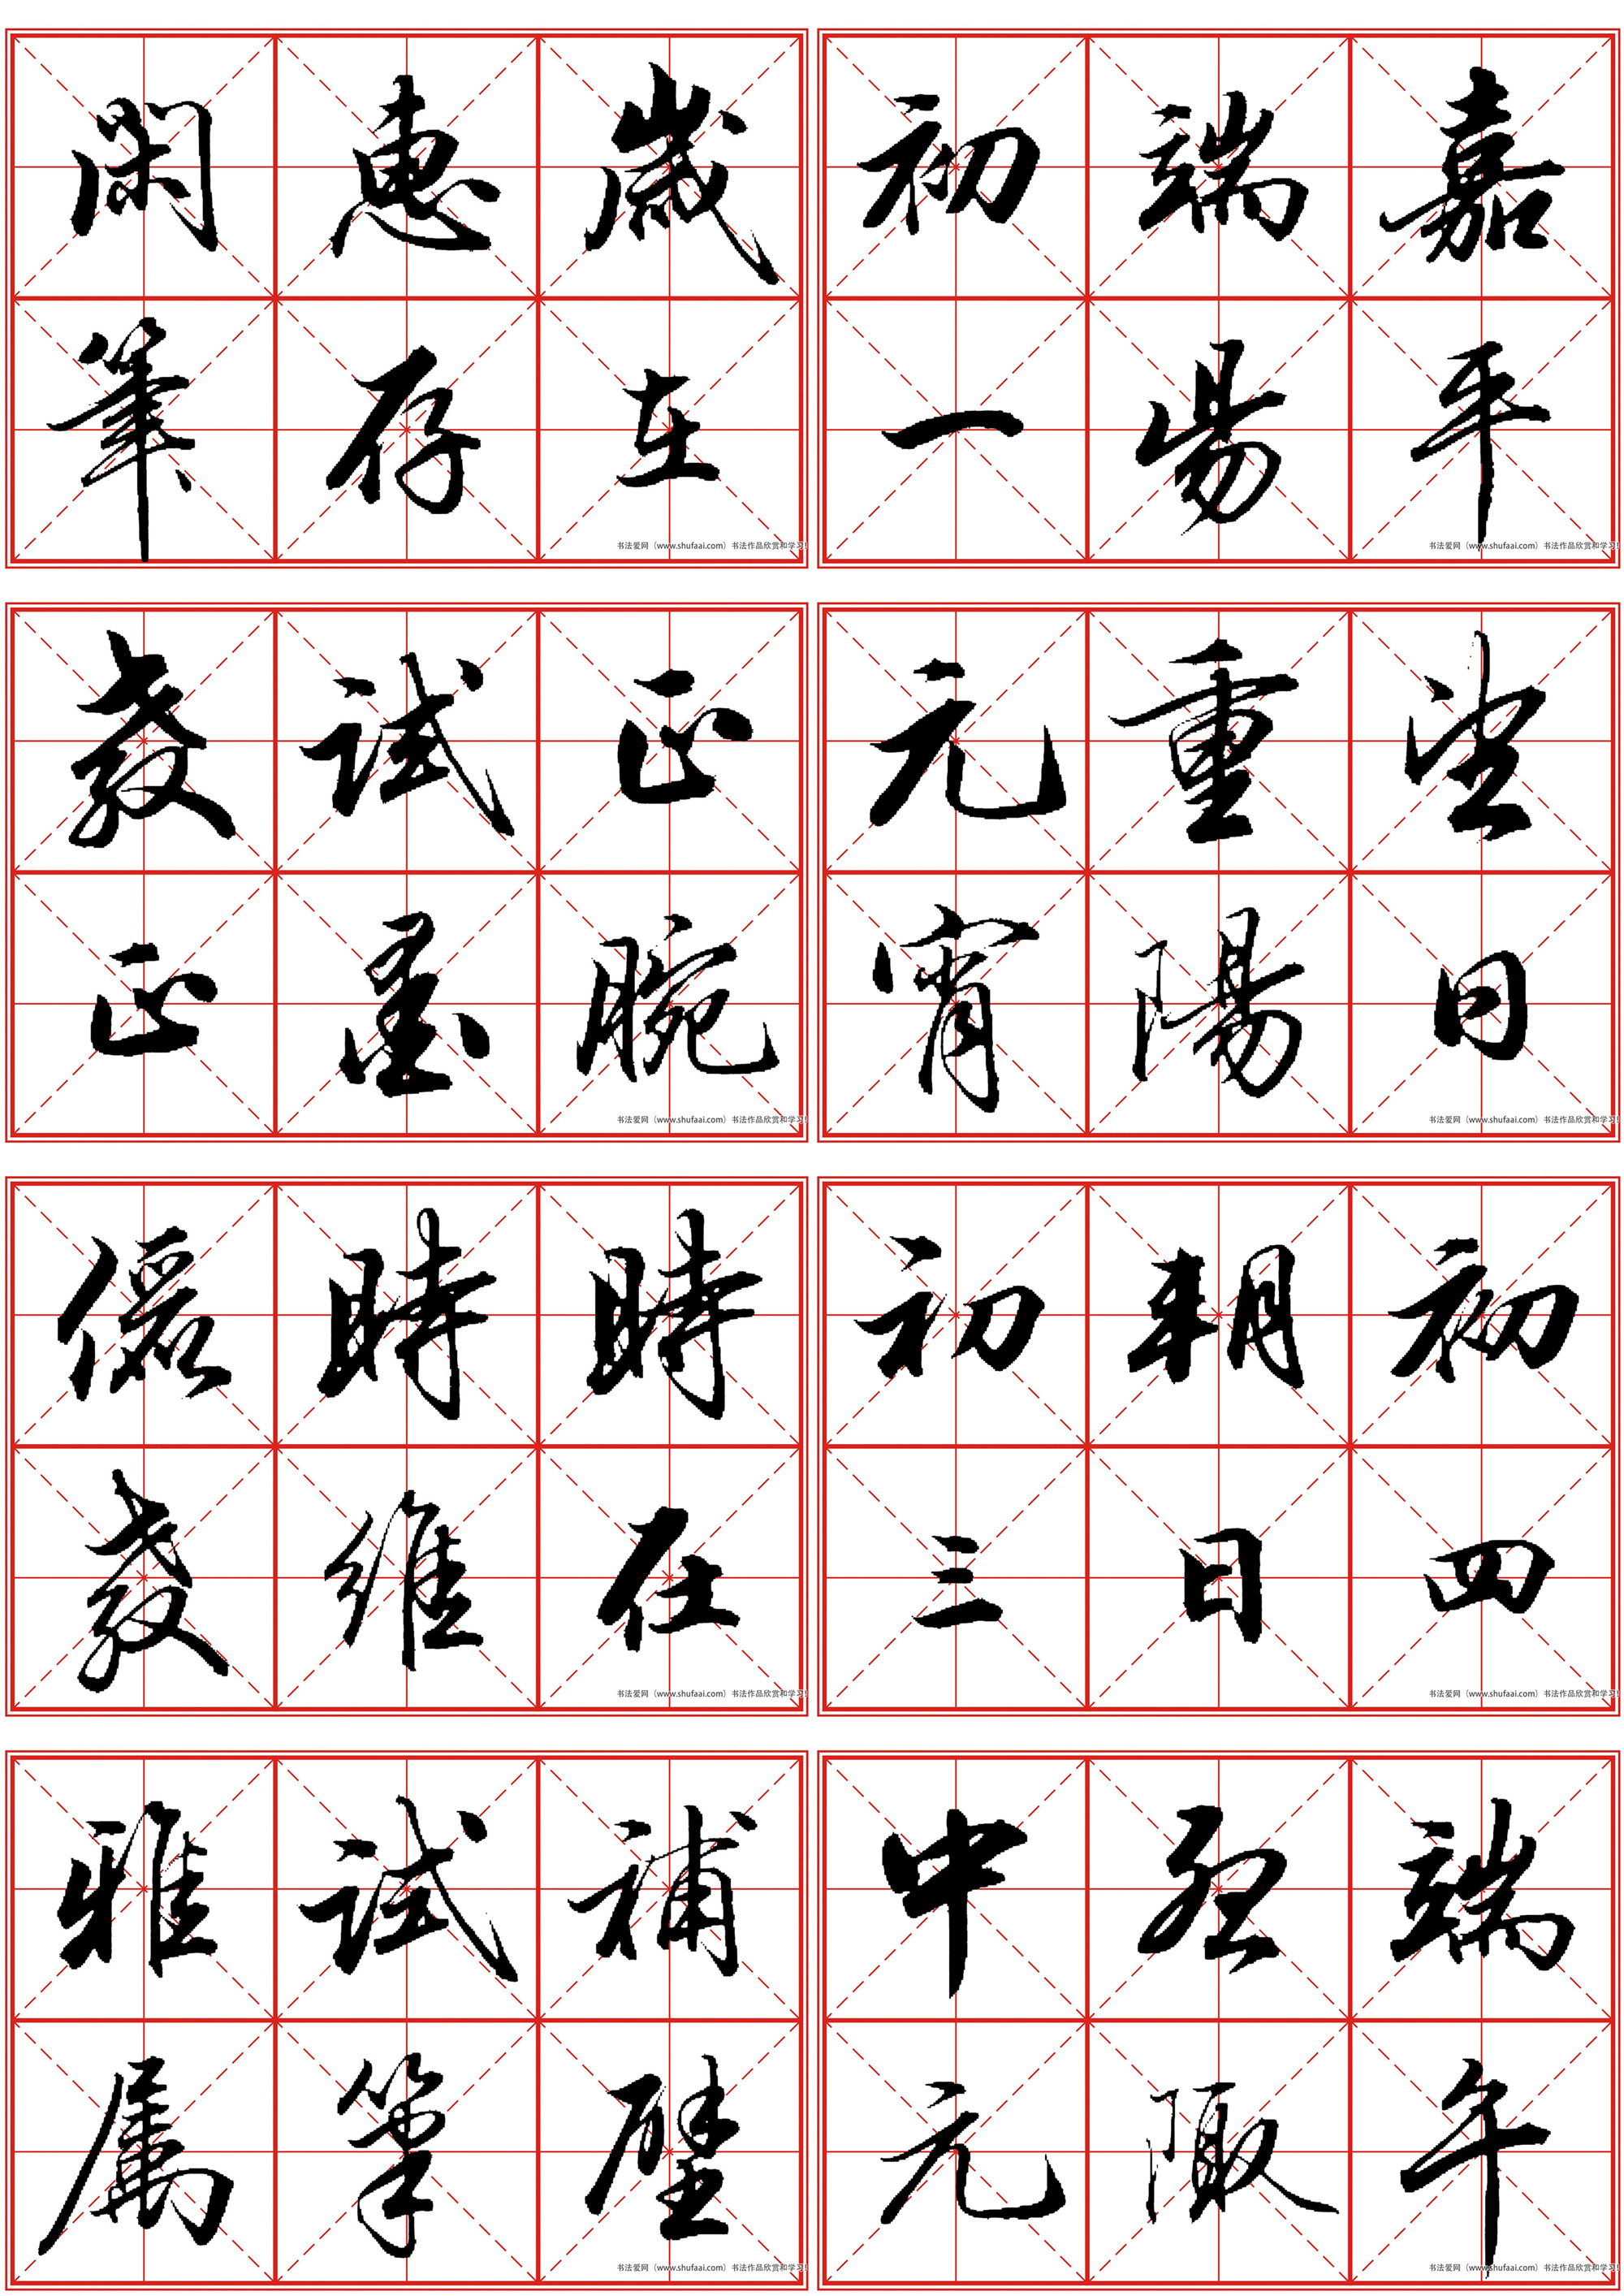 歲在
惠存
閑筆
书法爱网（www.shufaai.com）书法作品欣赏和学习!
嘉平
端昜
初一
书法爱网（www.shufaai.com）书法作品欣赏和学习!
正腕
試墨
教正
书法爱网（www.shufaai.com）书法作品欣赏和学习!
望日
重陽
元宵
书法爱网（www.shufaai.com）书法作品欣赏和学习!
時在
時維
儷教
书法爱网（www.shufaai.com）书法作品欣赏和学习!
初四
朝日
初三
书法爱网（www.shufaai.com）书法作品欣赏和学习!
補壁
試筆
雅属
书法爱网（www.shufaai.com）书法作品欣赏和学习!
端午
孟陬
中元
书法爱网（www.shufaai.com）书法作品欣赏和学习!